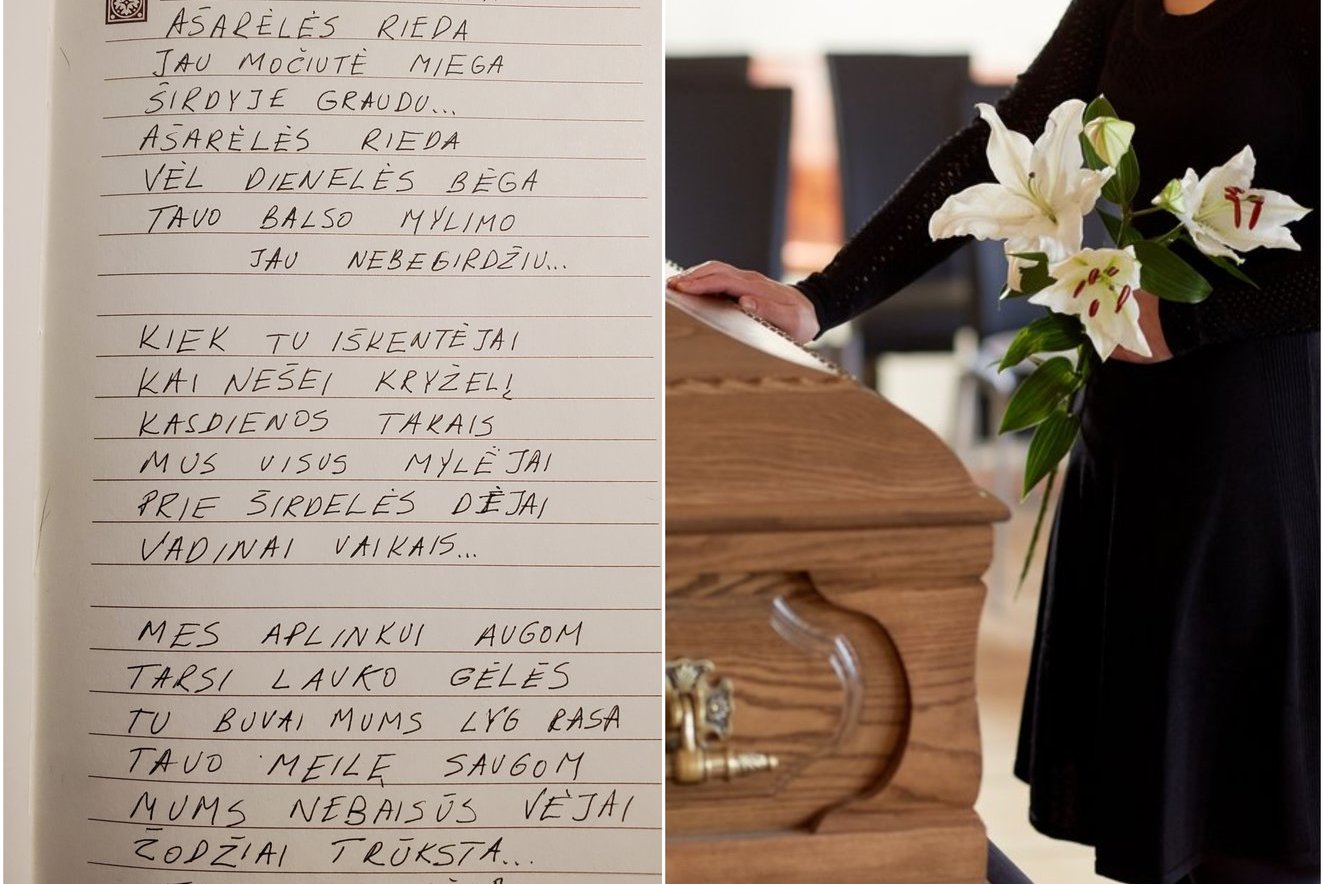 AŠARĖLĖS RIEDA
JAU MOČIUTĖ MIEGA
ŠIRDYJE GRAUDU...
AŠARĖLĖS RIEDA
VĖL DIENELĖS BĖGA
TAVO BALSO MYLIMO
JAU NEBEGIRDŽIU...
KIEK TU IŠKENTĖJAI
KAI NEŠEI KRYŽELĮ
KASDIENOS TAKAIS
MUS VISUS MYLĖJAI
PRIE ŠIRDELĖS DĖJAI
VADINAI VAIKAIS...
MES APLINKUI AUGOM
TARSI LAUKO GĖLĖS
TU BUVAI MUMS LYG RASA
TAVO MEILĘ SAUGOM
MUMS NEBAISŪS VĖJAI
ŽODŽIAI TRŪKSTA...